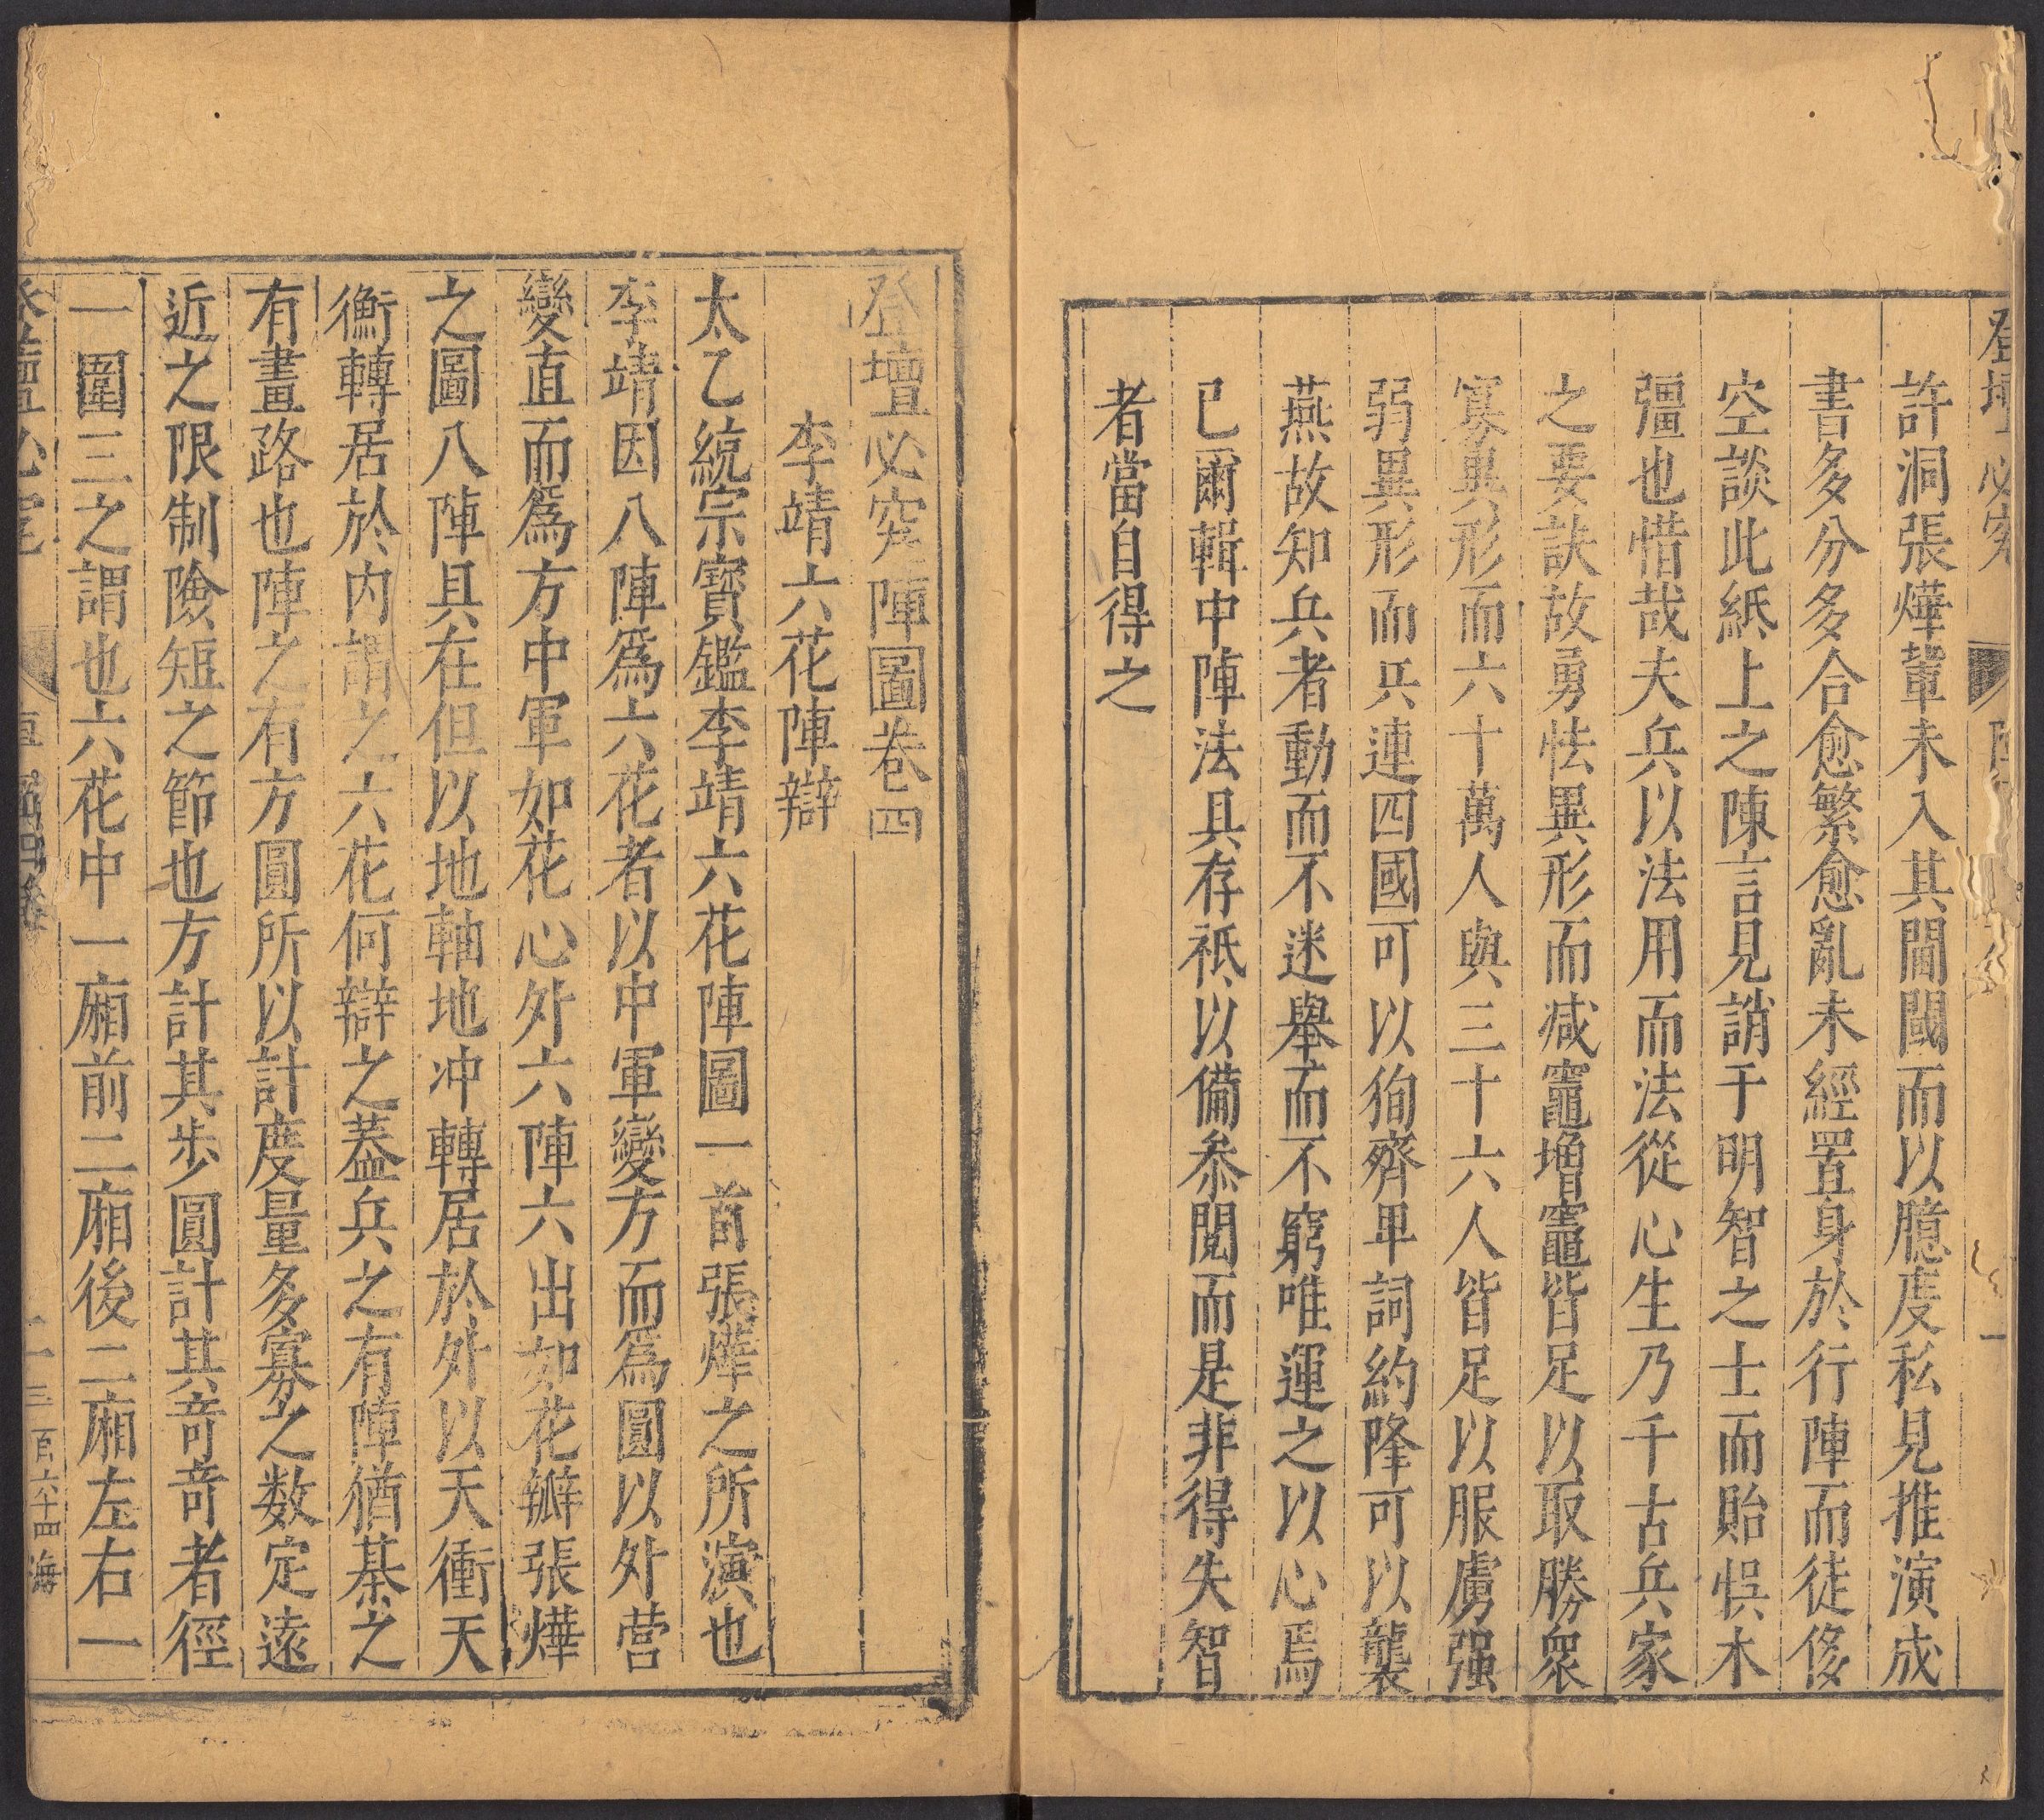 登壇必究
許洞張燁輩未入其閫閾而以臆度私見推演成
書多分多合愈繁愈亂未經置身於行陣而徒侈
空談此紙上之陳言見誚于明智之士而貽悞木
彊也惜哉夫兵以法用而法從心生乃千古兵家
之要訣故勇怯異形而减竈增竈皆足以取勝衆
寡異形而六十萬人與三十六人皆足以服虜强
弱異形而兵連四國可以狥齊卑詞約降可以襲
燕故知兵者動而不迷舉而不窮唯運之以心焉
已爾輯中陣法具存祇以備叅閱而是非得失智
者當自得之
登壇必究陣圖卷四
李靖六花陣辯
太乙統宗寳鑑李靖六花陣圖一首張燁之所演也
李靖因八陣爲六花者以中軍變方而爲圓以外营
變直而爲方中軍如花心外六陣六出如花瓣張燁
之圖八陣具在但以地軸地冲轉居於外以天衝天
衡轉居於内謂之六花何辯之葢兵之有陣猶棊之
有畫路也陣之有方圓所以計度量多寡之数定遠
近之限制險短之節也方計其步圓計其竒竒者徑
一圍三之謂也六花中一廂前二廂後二廂左右一
三百六十四 海